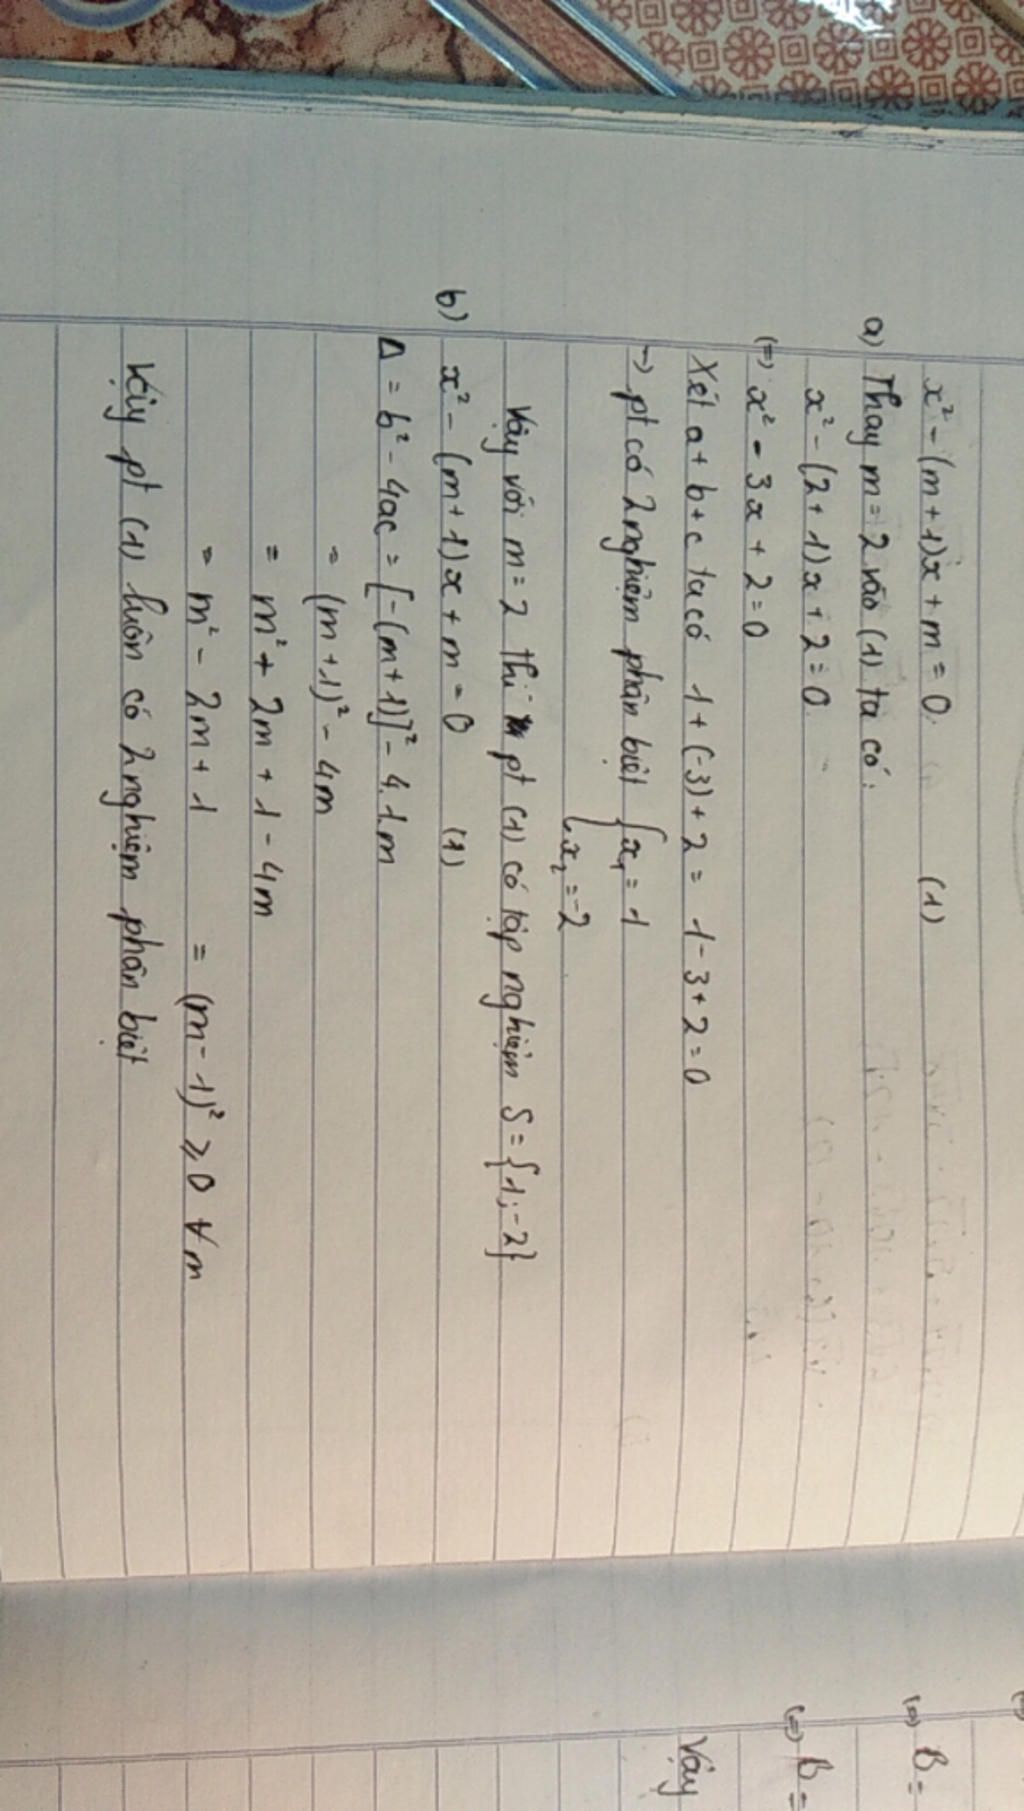 x² - (m + 1)x + m = 0. (1)
a) Thay m = 2 vào (1) ta có:
x² - (2 + 1)x + 2 = 0.
(=) x² - 3x + 2 = 0
Xét a + b + c ta có 1 + (-3) + 2 = 1 - 3 + 2 = 0
-) pt có 2 nghiệm phân biệt { x₁ = 1
x₂ = -2
Vậy với m = 2 thì pt (1) có tập nghiệm S = {1; -2}
b) x² - (m + 1)x + m = 0 (1)
Δ = b² - 4ac = [-(m + 1)]² - 4.1m
= (m + 1)² - 4m
= m² + 2m + 1 - 4m
= m² - 2m + 1 = (m - 1)² ⩾ 0 ∀ m
Vậy pt (1) luôn có 2 nghiệm phân biệt
(=) B =
(=) B =
Vậy